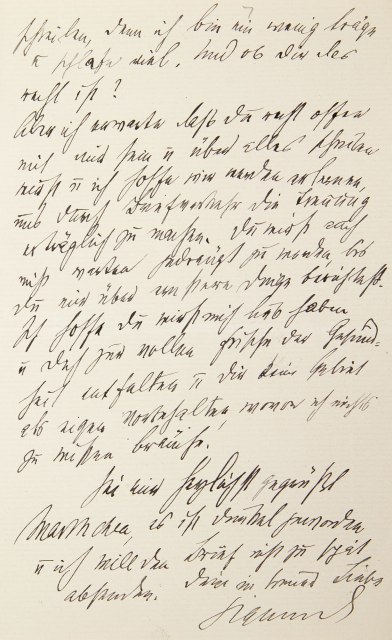 schreiben, denn ich bin ein wenig träge
u schlafe viel. Und ob dir das
recht ist?
Aber ich erwarte daß du recht offen
mir wirst sein u über alles schreiben
wirst u ich hoffe wir werden es lernen,
uns durch Briefverkehr die Trennung
erträglich zu machen. Du wirst auch
nicht warten gedrängt zu werden, bis
du mir über unsere Dinge berichtest.
Ich hoffe du wirst mich lieb haben
u dich zur vollen Frische der Gesund-
heit entfalten u dir kein Gebiet
als eigen vorbehalten, wovon ich nichts
zu wissen brauche.
Sei mir herzlichst gegrüßt
Marthchen, es ist dunkel geworden
u ich will den Brief nicht zu spät
absenden. Dein in treuer Liebe
Sigmund